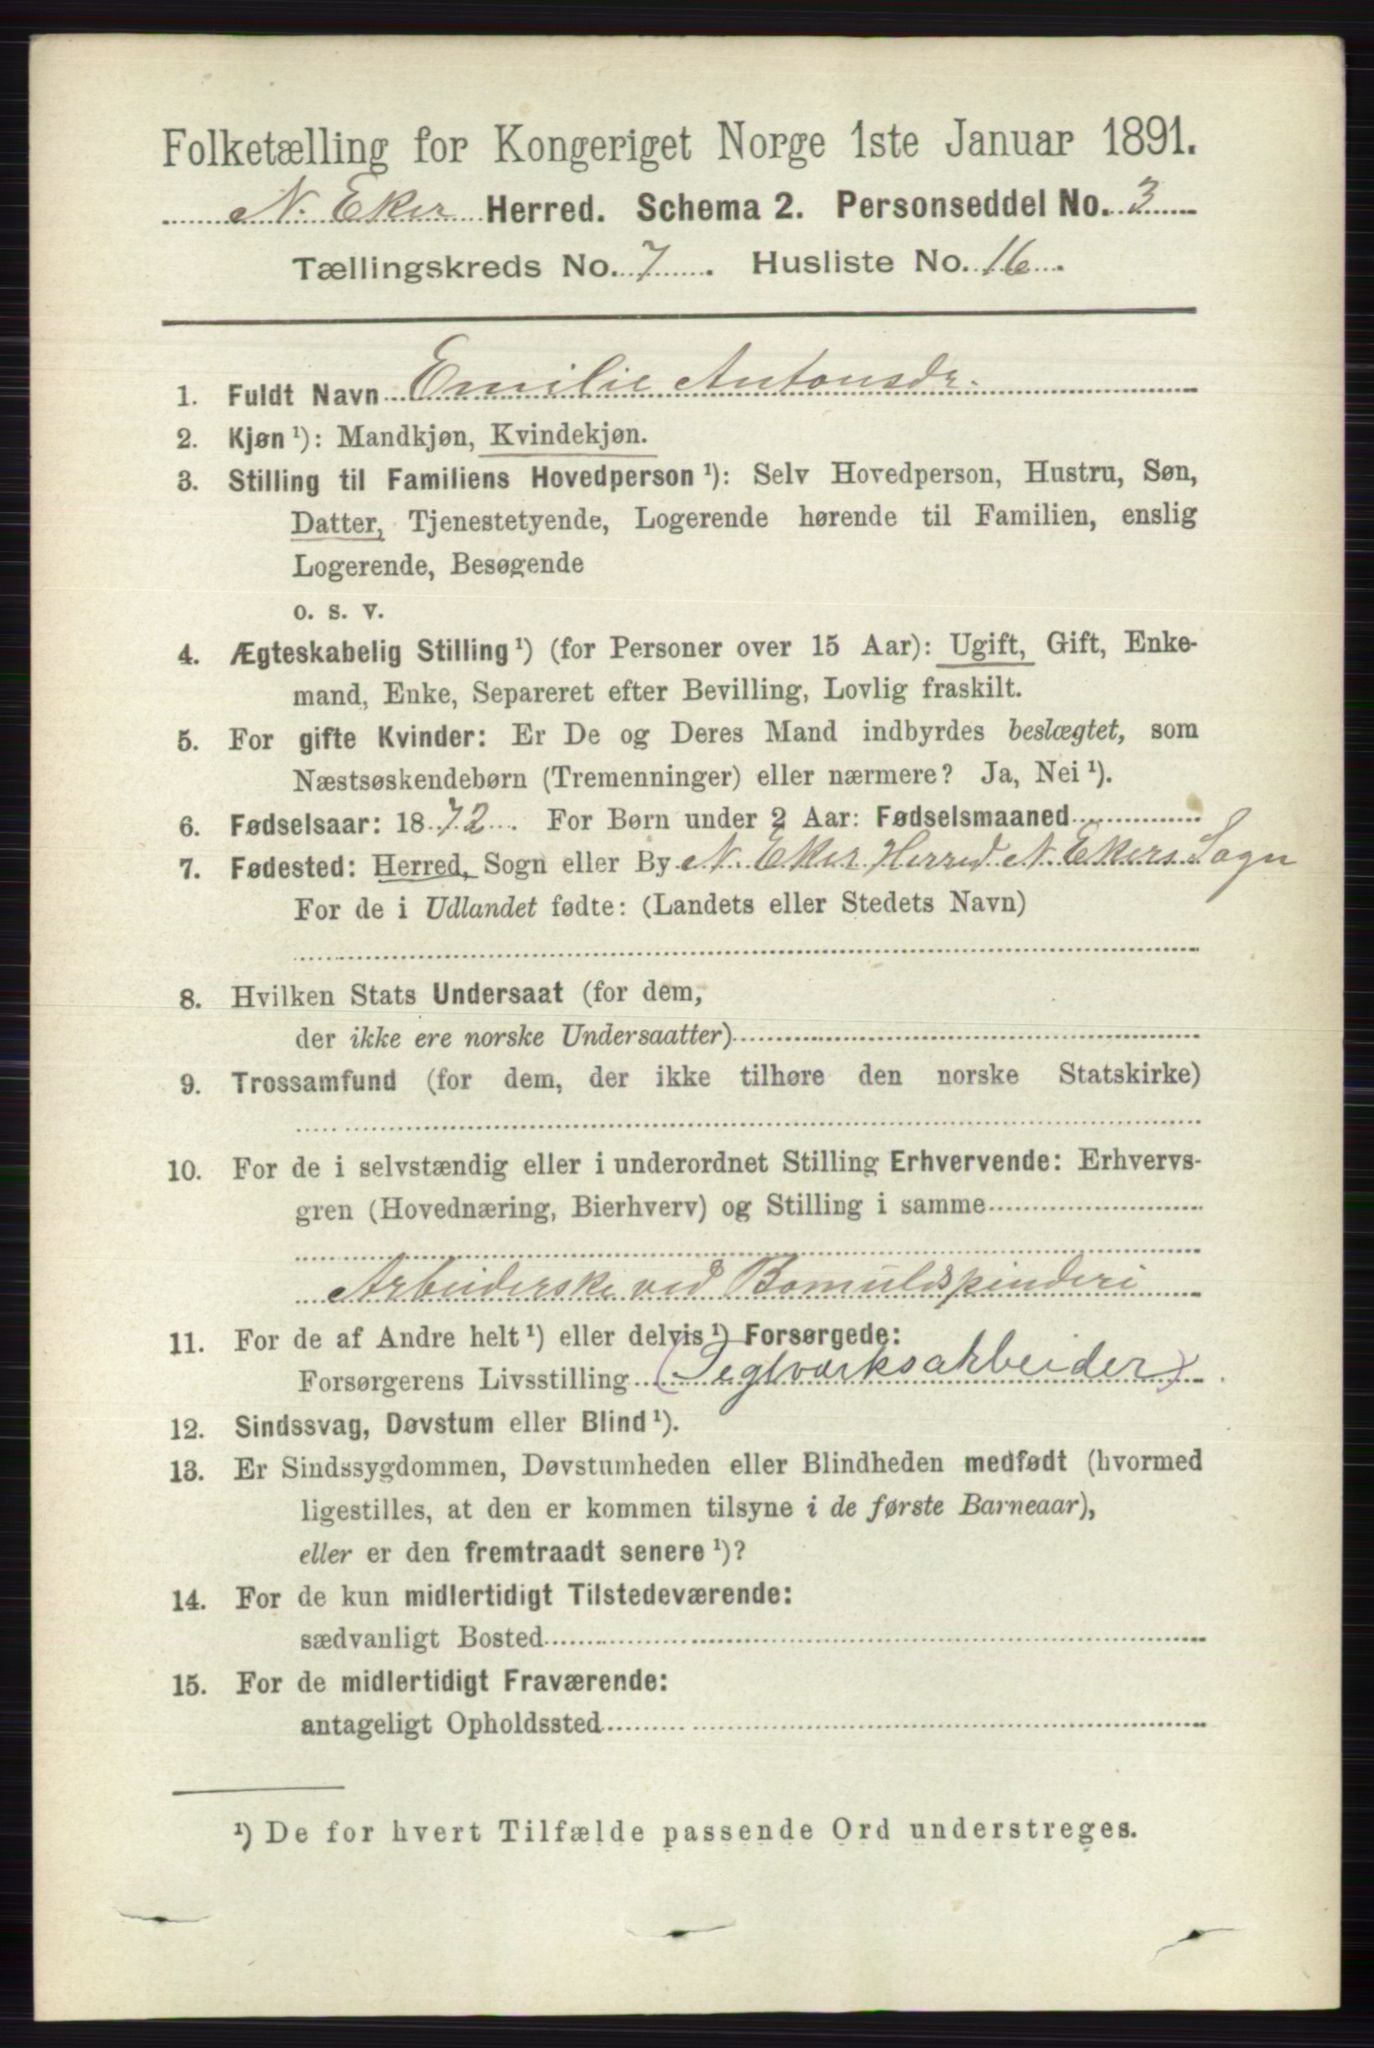 Folketælling for Kongeriget Norge 1ste Januar 1891.
N. Eker Herred. Schema 2. Personseddel No. 3
Tællingskreds No. 7. Husliste No. 16.
1. Fuldt Navn Emilie Antonsdr.
2. Kjøn ¹): Mandkjøn, Kvindekjøn.
3. Stilling til Familiens Hovedperson ¹): Selv Hovedperson, Hustru, Søn,
Datter, Tjenestetyende, Logerende hørende til Familien, enslig
Logerende, Besøgende
o. s. v.
4. Ægteskabelig Stilling ¹) (for Personer over 15 Aar): Ugift, Gift, Enke-
mand, Enke, Separeret efter Bevilling, Lovlig fraskilt.
5. For gifte Kvinder: Er De og Deres Mand indbyrdes beslægtet, som
Næstsøskendebørn (Tremenninger) eller nærmere? Ja, Nei ¹).
6. Fødselsaar: 1872. For Børn under 2 Aar: Fødselsmaaned
7. Fødested: Herred, Sogn eller By N. Eker Herred N. Ekers Sogn
For de i Udlandet fødte: (Landets eller Stedets Navn)
8. Hvilken Stats Undersaat (for dem,
der ikke ere norske Undersaatter)
9. Trossamfund (for dem, der ikke tilhøre den norske Statskirke)
10. For de i selvstændig eller i underordnet Stilling Erhvervende: Erhvervs-
gren (Hovednæring, Bierhverv) og Stilling i samme
Arbeiderske ved Bomuldspinderi
11. For de af Andre helt ¹) eller delvis ¹) Forsørgede:
Forsørgerens Livsstilling (Teglværksarbeider)
12. Sindssvag, Døvstum eller Blind ¹).
13. Er Sindssygdommen, Døvstumheden eller Blindheden medfødt (hvormed
ligestilles, at den er kommen tilsyne i de første Barneaar),
eller er den fremtraadt senere ¹)?
14. For de kun midlertidigt Tilstedeværende:
sædvanligt Bosted
15. For de midlertidigt Fraværende:
antageligt Opholdssted
¹) De for hvert Tilfælde passende Ord understreges.